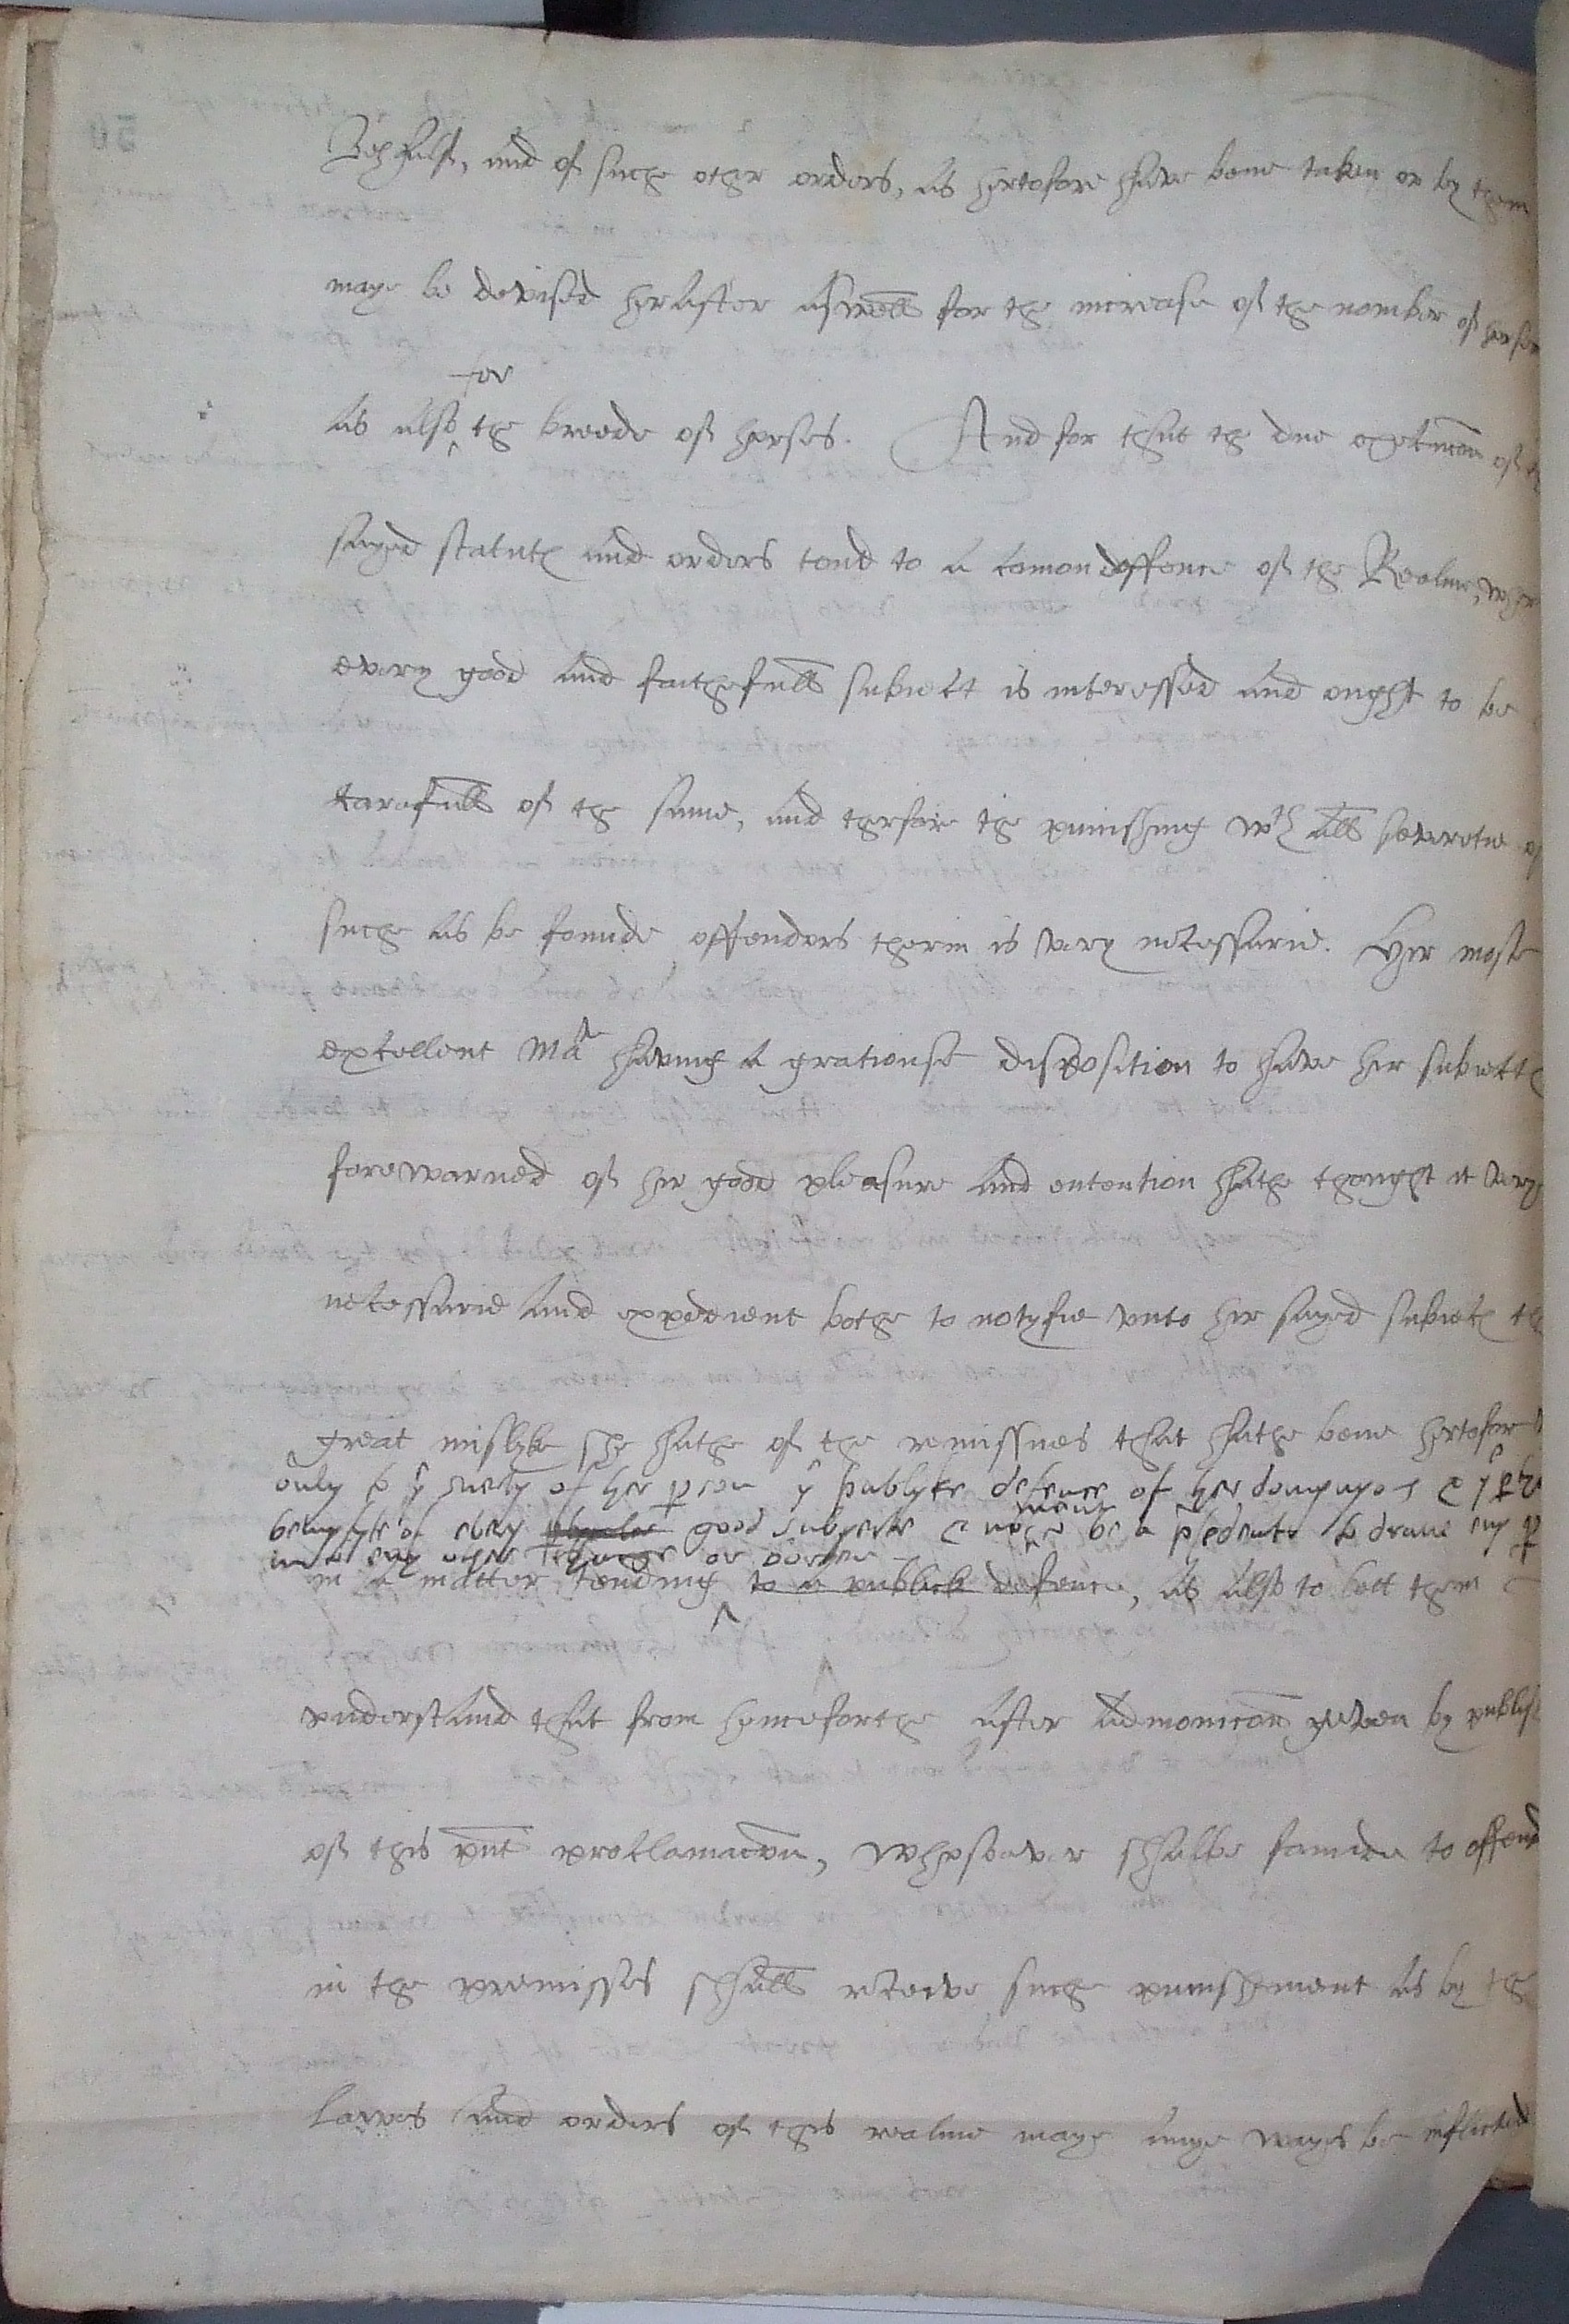 behalfe, and of suche other orders, as hertofore have bene taken or by them
maye be devised herafter aswell for the increase of the nomber of horsem
for
as also the breede of horses. And for that the due execucion of th
sayed statutes and orders tend to a comon deffence of the Realme, wher
every good and faithefull subiect is interessed and ought to be
carefull of the same, and therfore the punishing wth all severetie of
suche as be founde offenders therin is very necessarie. Her moste
excellent Matie having a gratiouse disposition to have her subiectes
forewarned of her good pleasure and entention hathe thought it very
necessarie and expedient bothe to notyfie unto her sayed subiectes the
great mislyke she hathe of the remissnes that hathe bene hertofore
only to ye suerty of her person ye publyke defence of her domynyos & ye
benefyte of every good subyecte & not be a presedente to drawe eny
into eny other charge or borden
in a matter tending to a publick defence, as also to lett them
understand that from henceforthe after admonicon geven by publis
of this pnt proclamacon, whosoever shalbe founde to offend
in the premisses shall receive suche punishement as by the
lawes and orders of this realme maye anye wayes be inflicted